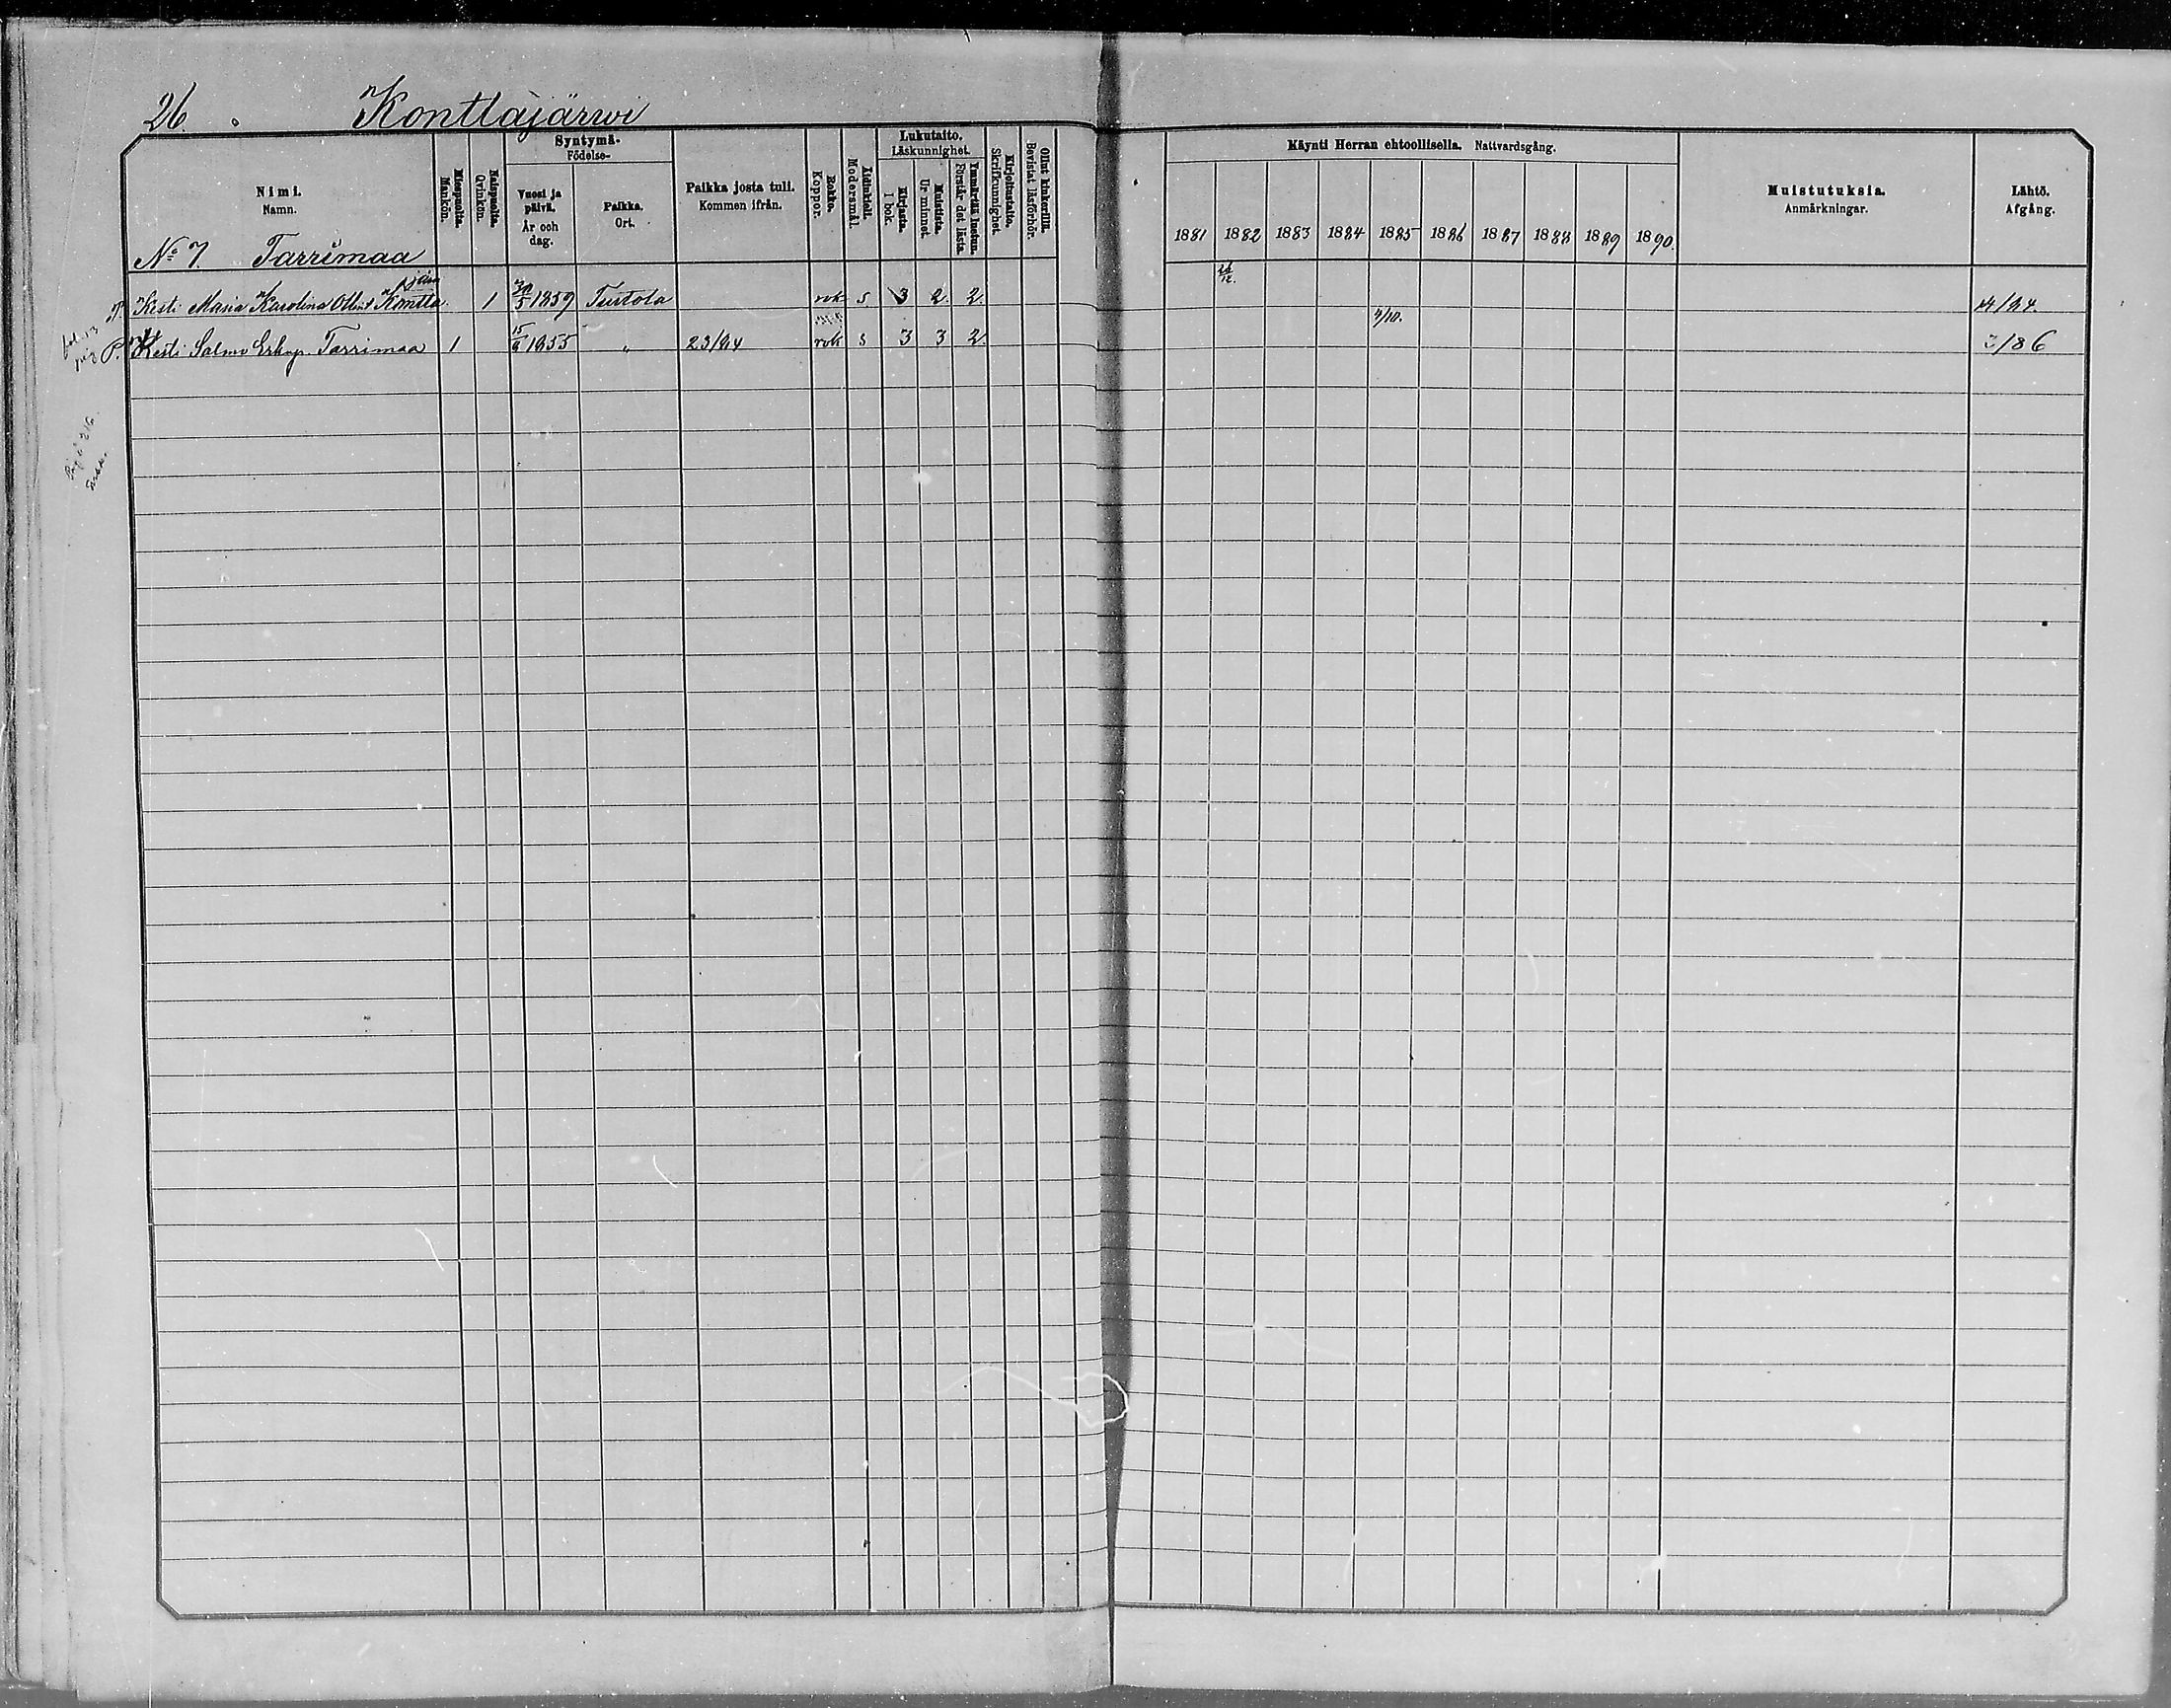 26. Konttajärwi
Nimi.
Namn.
Miespuolia.
Mankön.
Naispuolia.
Qvinkön.
Syntymä-
Födelse-
Vuosi ja päivä.
År och dag.
Paikka.
Ort.
Paikka josta tuli.
Kommen ifrån.
Rokko.
Koppor.
Äidinkieli.
Modersmål.
Lukutaito.
Läskunnighet.
Kirjasta.
I bok.
Muistista.
Ur minnet.
Ymmärtää luetun.
Förstår det lästa.
Kirjoitustaito.
Skrifkunnighet.
Ollut kinkerillä.
Bevistat läsförhör.
Käynti Herran ehtoollisella. Nattvardsgång.
1881 1882 1883 1884 1885 1886 1887 1888 1889 1890.
Muistutuksia.
Anmärkningar.
Lähtö.
Afgång.
No 7. Tarrimaa
P. Kesti Maria Karolina Kontta 1 1859 Turtola rok s 3 2 2 /84.
P. Kesti Salmo Erkinp. Tarrimaa 1 15/6 1855 " 23/84 rok s 3 3 2 4/10. /86